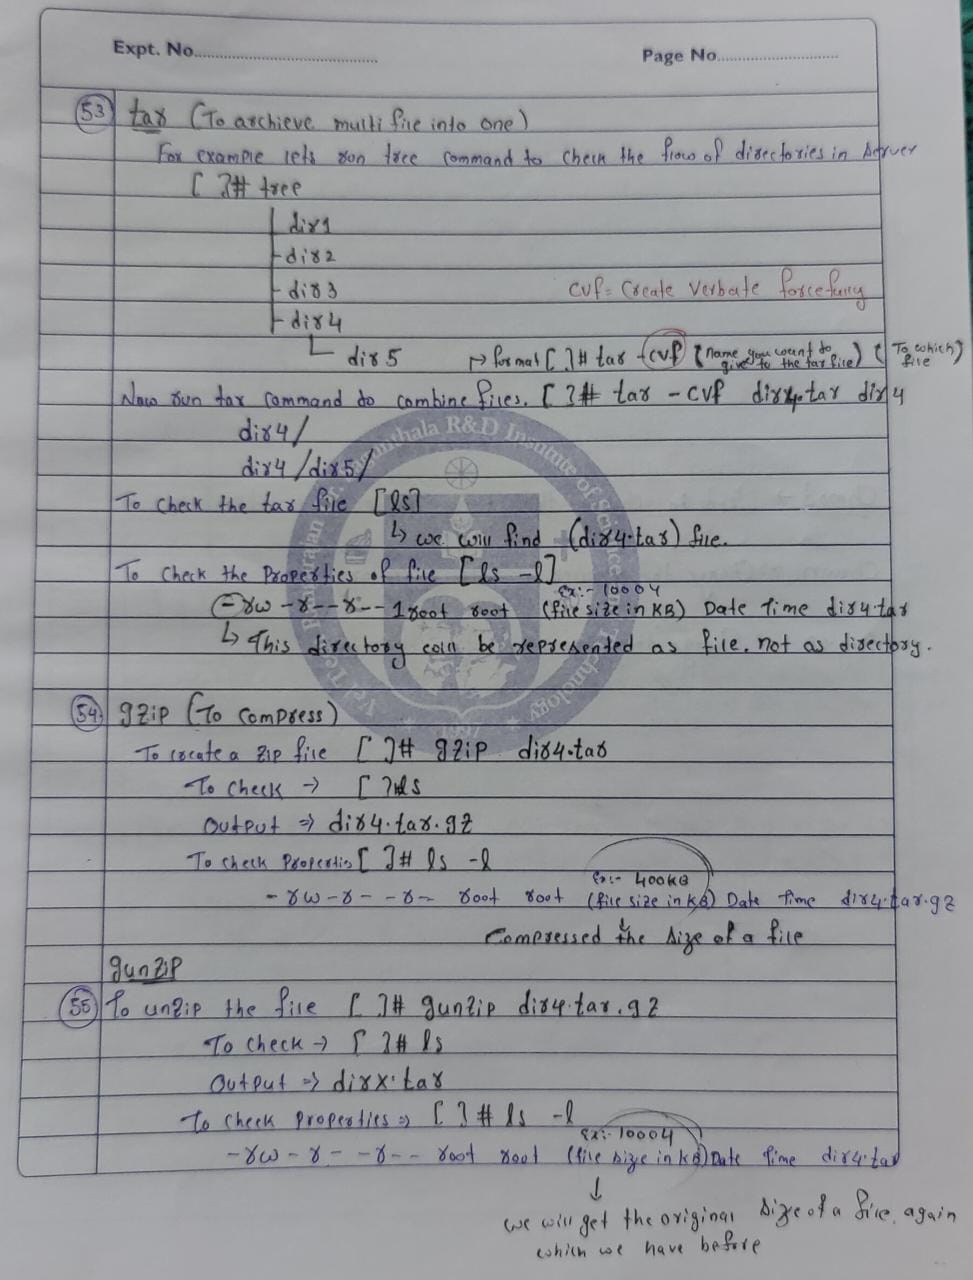 Expt. No.
Page No.
53 tar (To archieve multi file into one)
For example lets run tree command to check the flow of directories in server
[ ]# tree
dir1
dir2
dir3
cvf= Create Verbate forcefully
dir4
dir5
→ format [ ]# tar -cvf (name you want to give to the tar file) (To which file)
Now run tar command to combine files. [ ]# tar -cvf dir4.tar dir4
dir4/
dir4/dir5/
To check the tar file [ls]
↳ we will find (dir4.tar) file.
To check the Properties of file [ls -l]
Ex:- 10004
-rw-r--r-- 1 root root (file size in KB) Date Time dir4.tar
↳ This directory will be represented as file. not as directory.
54 gzip (To compress)
To create a zip file [ ]# gzip dir4.tar
To check → [ ]# ls
Output ⇒ dir4.tar.gz
To check Properties [ ]# ls -l
Ex:- 400KB
-rw-r--r-- root root (file size in KB) Date Time dir4.tar.gz
Compressed the size of a file
gunzip
55 To unzip the file [ ]# gunzip dir4.tar.gz
To check → [ ]# ls
Output ⇒ dirx.tar
To check properties ⇒ [ ]# ls -l
Ex:- 10004
-rw-r--r-- root root (file size in KB) Date Time dir4.tar
↓
we will get the original size of a file again
which we have before